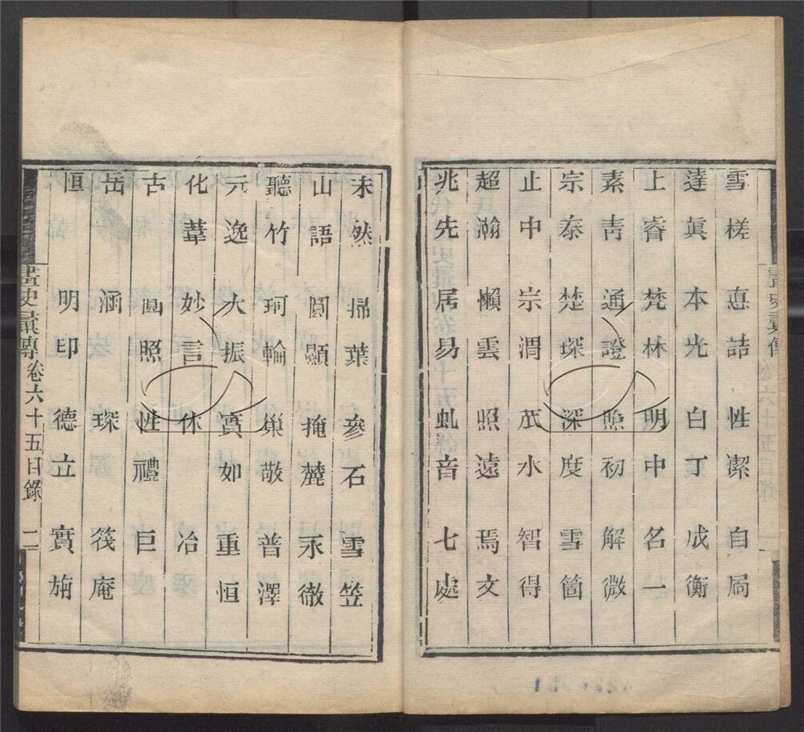 雪槎 悳詰 性潔 自局
達眞 本光 白丁 成衡
上睿 梵林 明中 名一
素靑 通證 照初 解微
宗泰 楚琛 深度 雪箇
止中 宗渭 茂水 智得
超瀚 懶雲 照遠 焉文
兆先 居易 虬音 七處
未然 掃葉 參石 雪笠
山語 顯 掩麓 永徹
聽竹 珂輪 巢敬 普澤
元逸 大振 實如 重恒
化葦 妙言 休 冶
古 照 性禮 巨
岳 涵 琛 筏庵
恒 明印 德立 實旃
畫史彙傳 卷六十五目錄